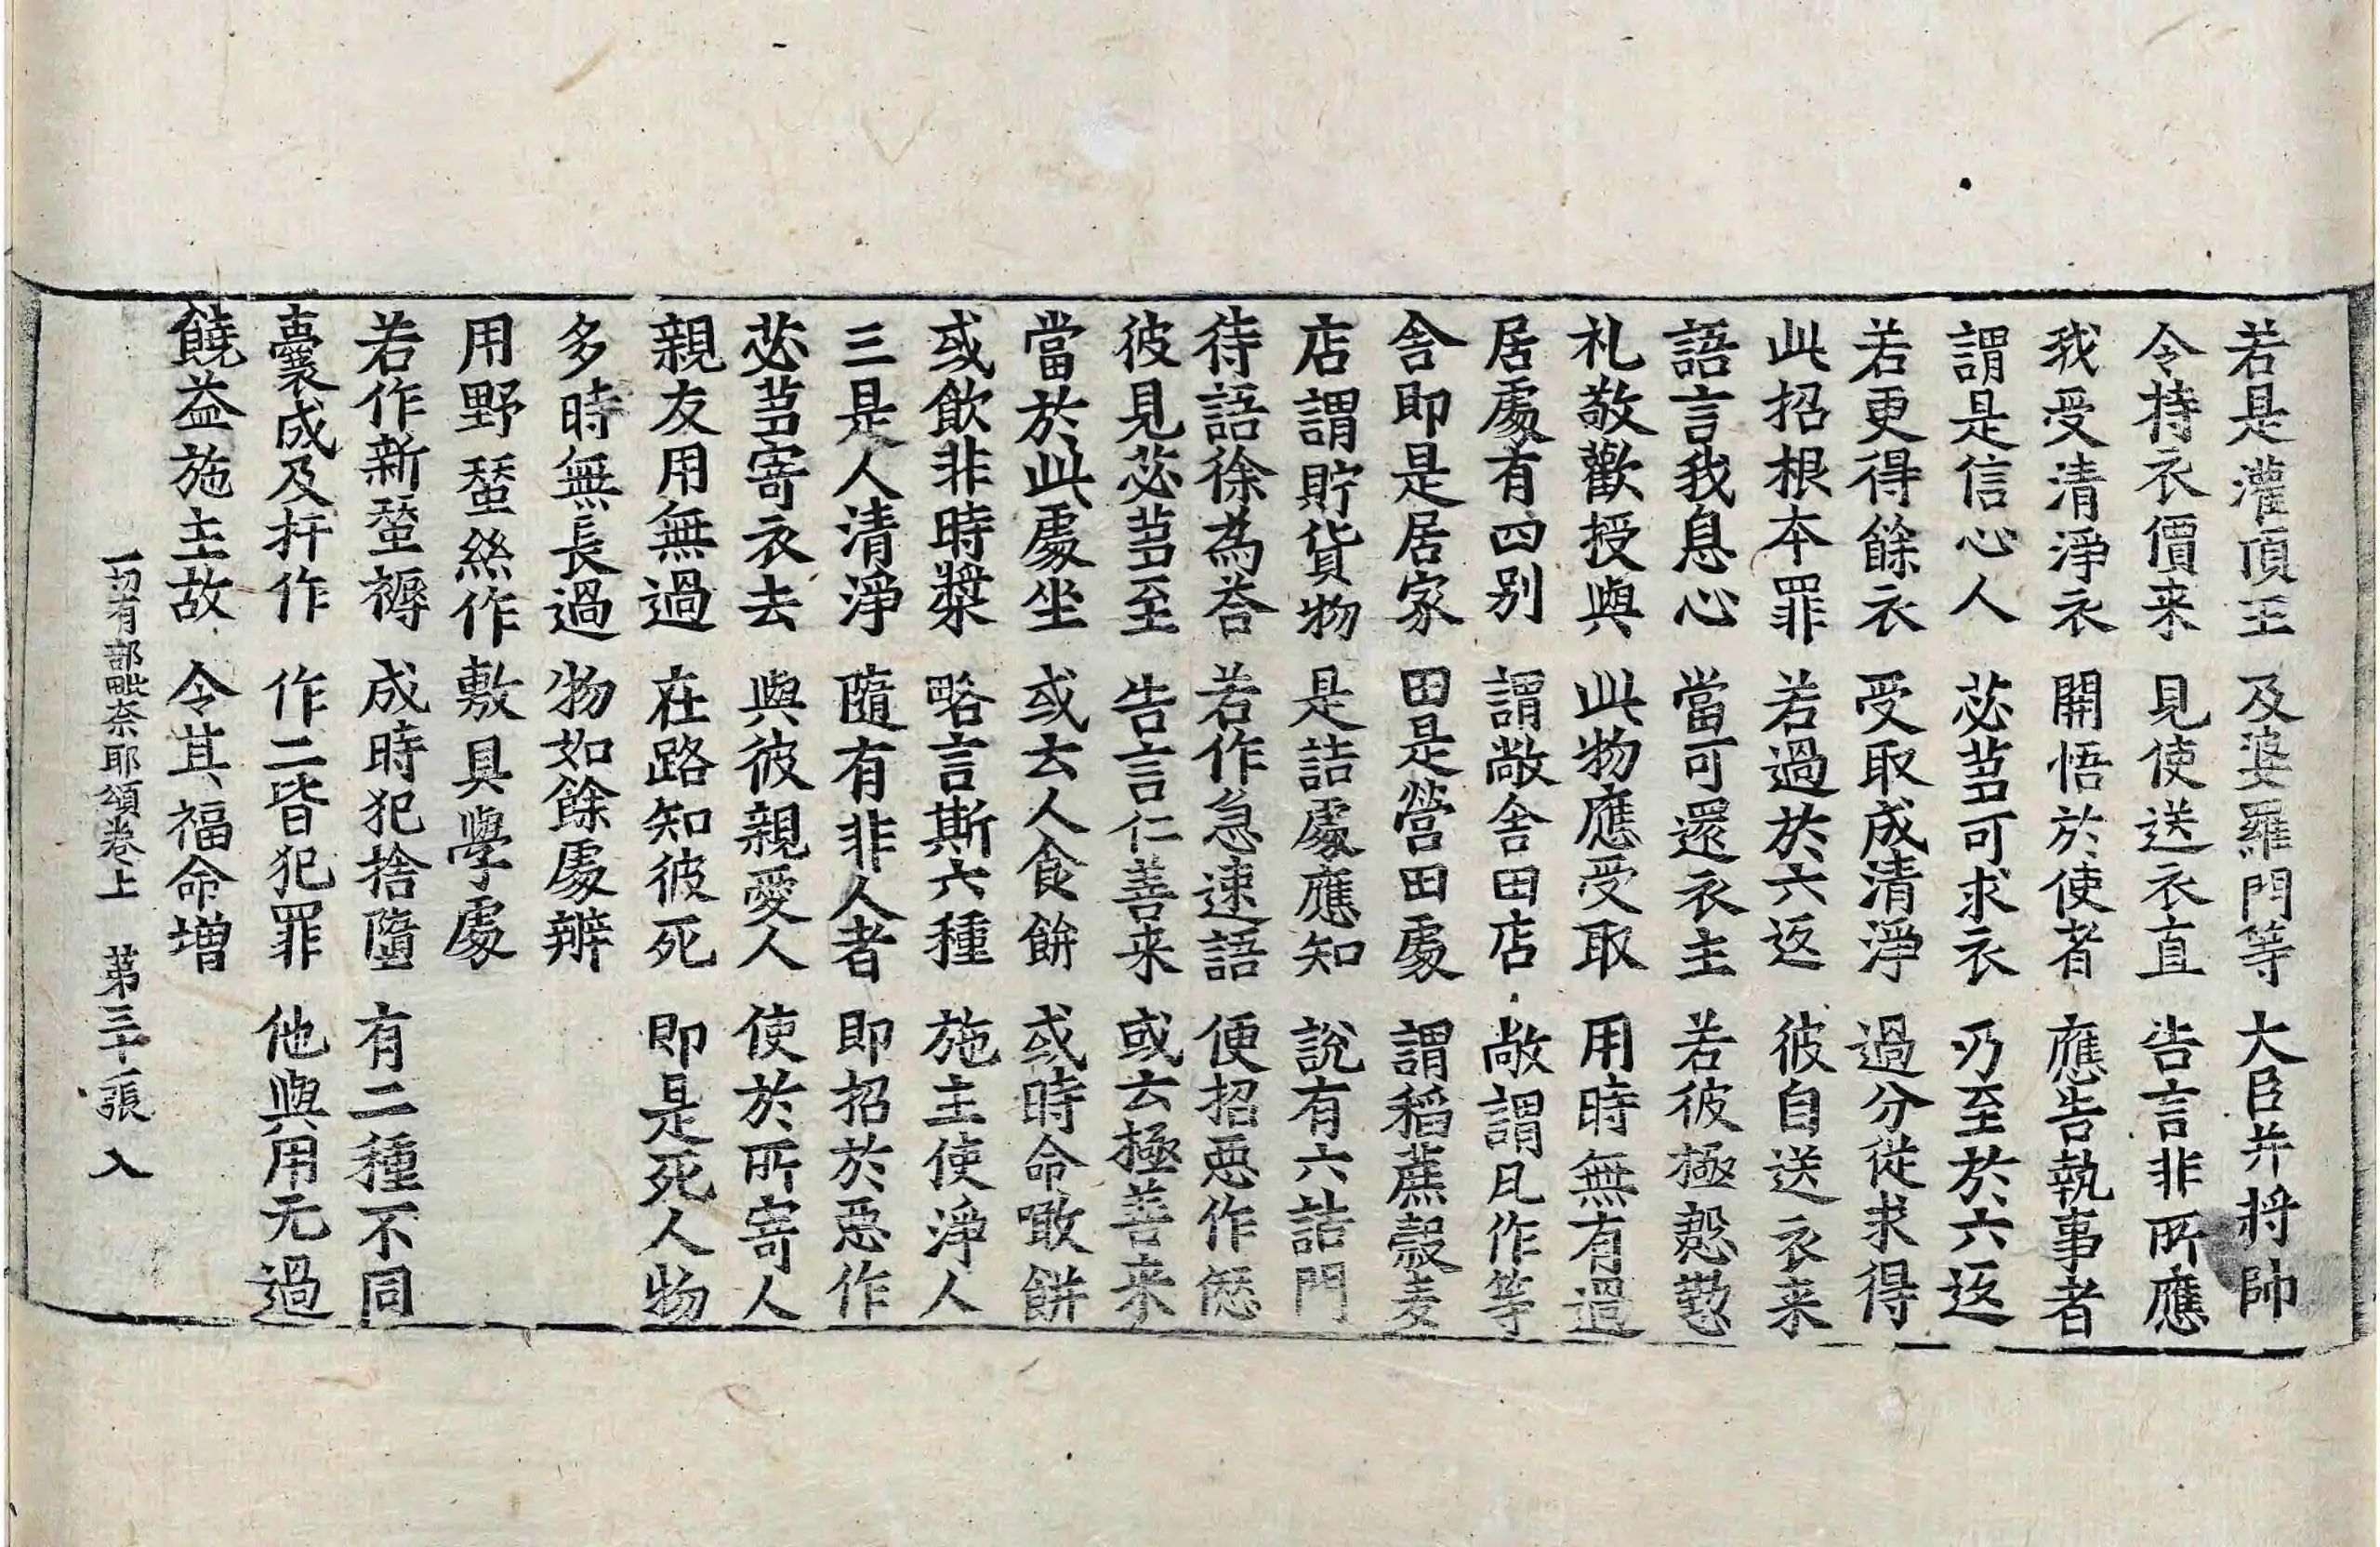 若是灌頂王　及婆羅門等　大臣并將帥
令持衣價来　見使送衣直　告言非所應
我受清淨衣　開悟於使者　應告執事者
謂是信心人　苾芻可求衣　乃至於六返
若更得餘衣　受取成清淨　過分從求得
此招根本罪　若過於六返　彼自送衣来
語言我息心　當可還衣主　若彼極慇懃
札敬歡授與　此物應受取　用時無有過
居處有四别　謂敞舍田店　敞謂凡作等
舍即是居家　田是營田處　謂稻蔗穀麦
店謂貯貨物　是詰處應知　說有六詰門
待語徐為荅　若作急速語　便招惡作愆
彼見苾芻至　告言仁善来　或云極善来
當於此處坐　或去人食餅　或時命噉餅
或飲非時漿　略言斯六種　施主使淨人
三是人清淨　隨有非人者　即招於惡作
苾芻寄衣去　與彼親愛人　使於所寄人
親友用無過　在路知彼死　即是死人物
多時無長過　物如餘處辯
用野蠶絲作敷具學處
若作新蠶褥　成時犯捨墮　有二種不同
囊成及扞作　作二皆犯罪　他與用无過
饒益施主故　令其福命增
一切有部毗奈耶頌卷上　第三十張　入